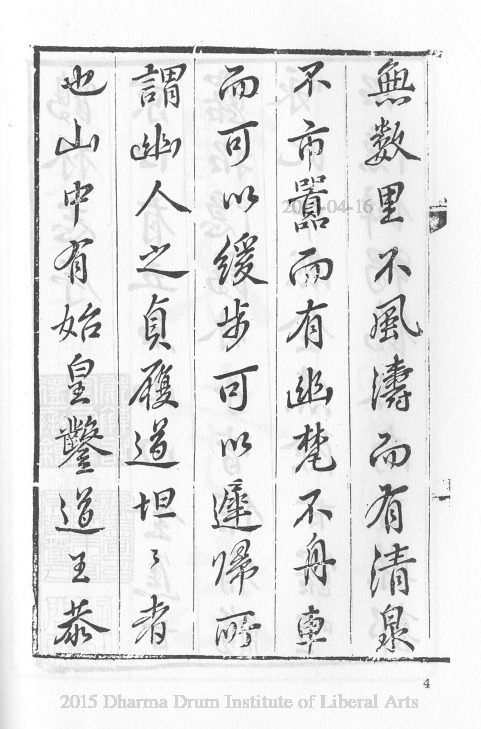 無数里不風濤而有清泉
不市囂而有幽梵不舟車
而可以緩步可以遲歸所
謂幽人之貞履道坦〻者
也山中有始皇鑿道王恭
2015-04-16
4
2015 Dharma Drum Institute of Liberal Arts